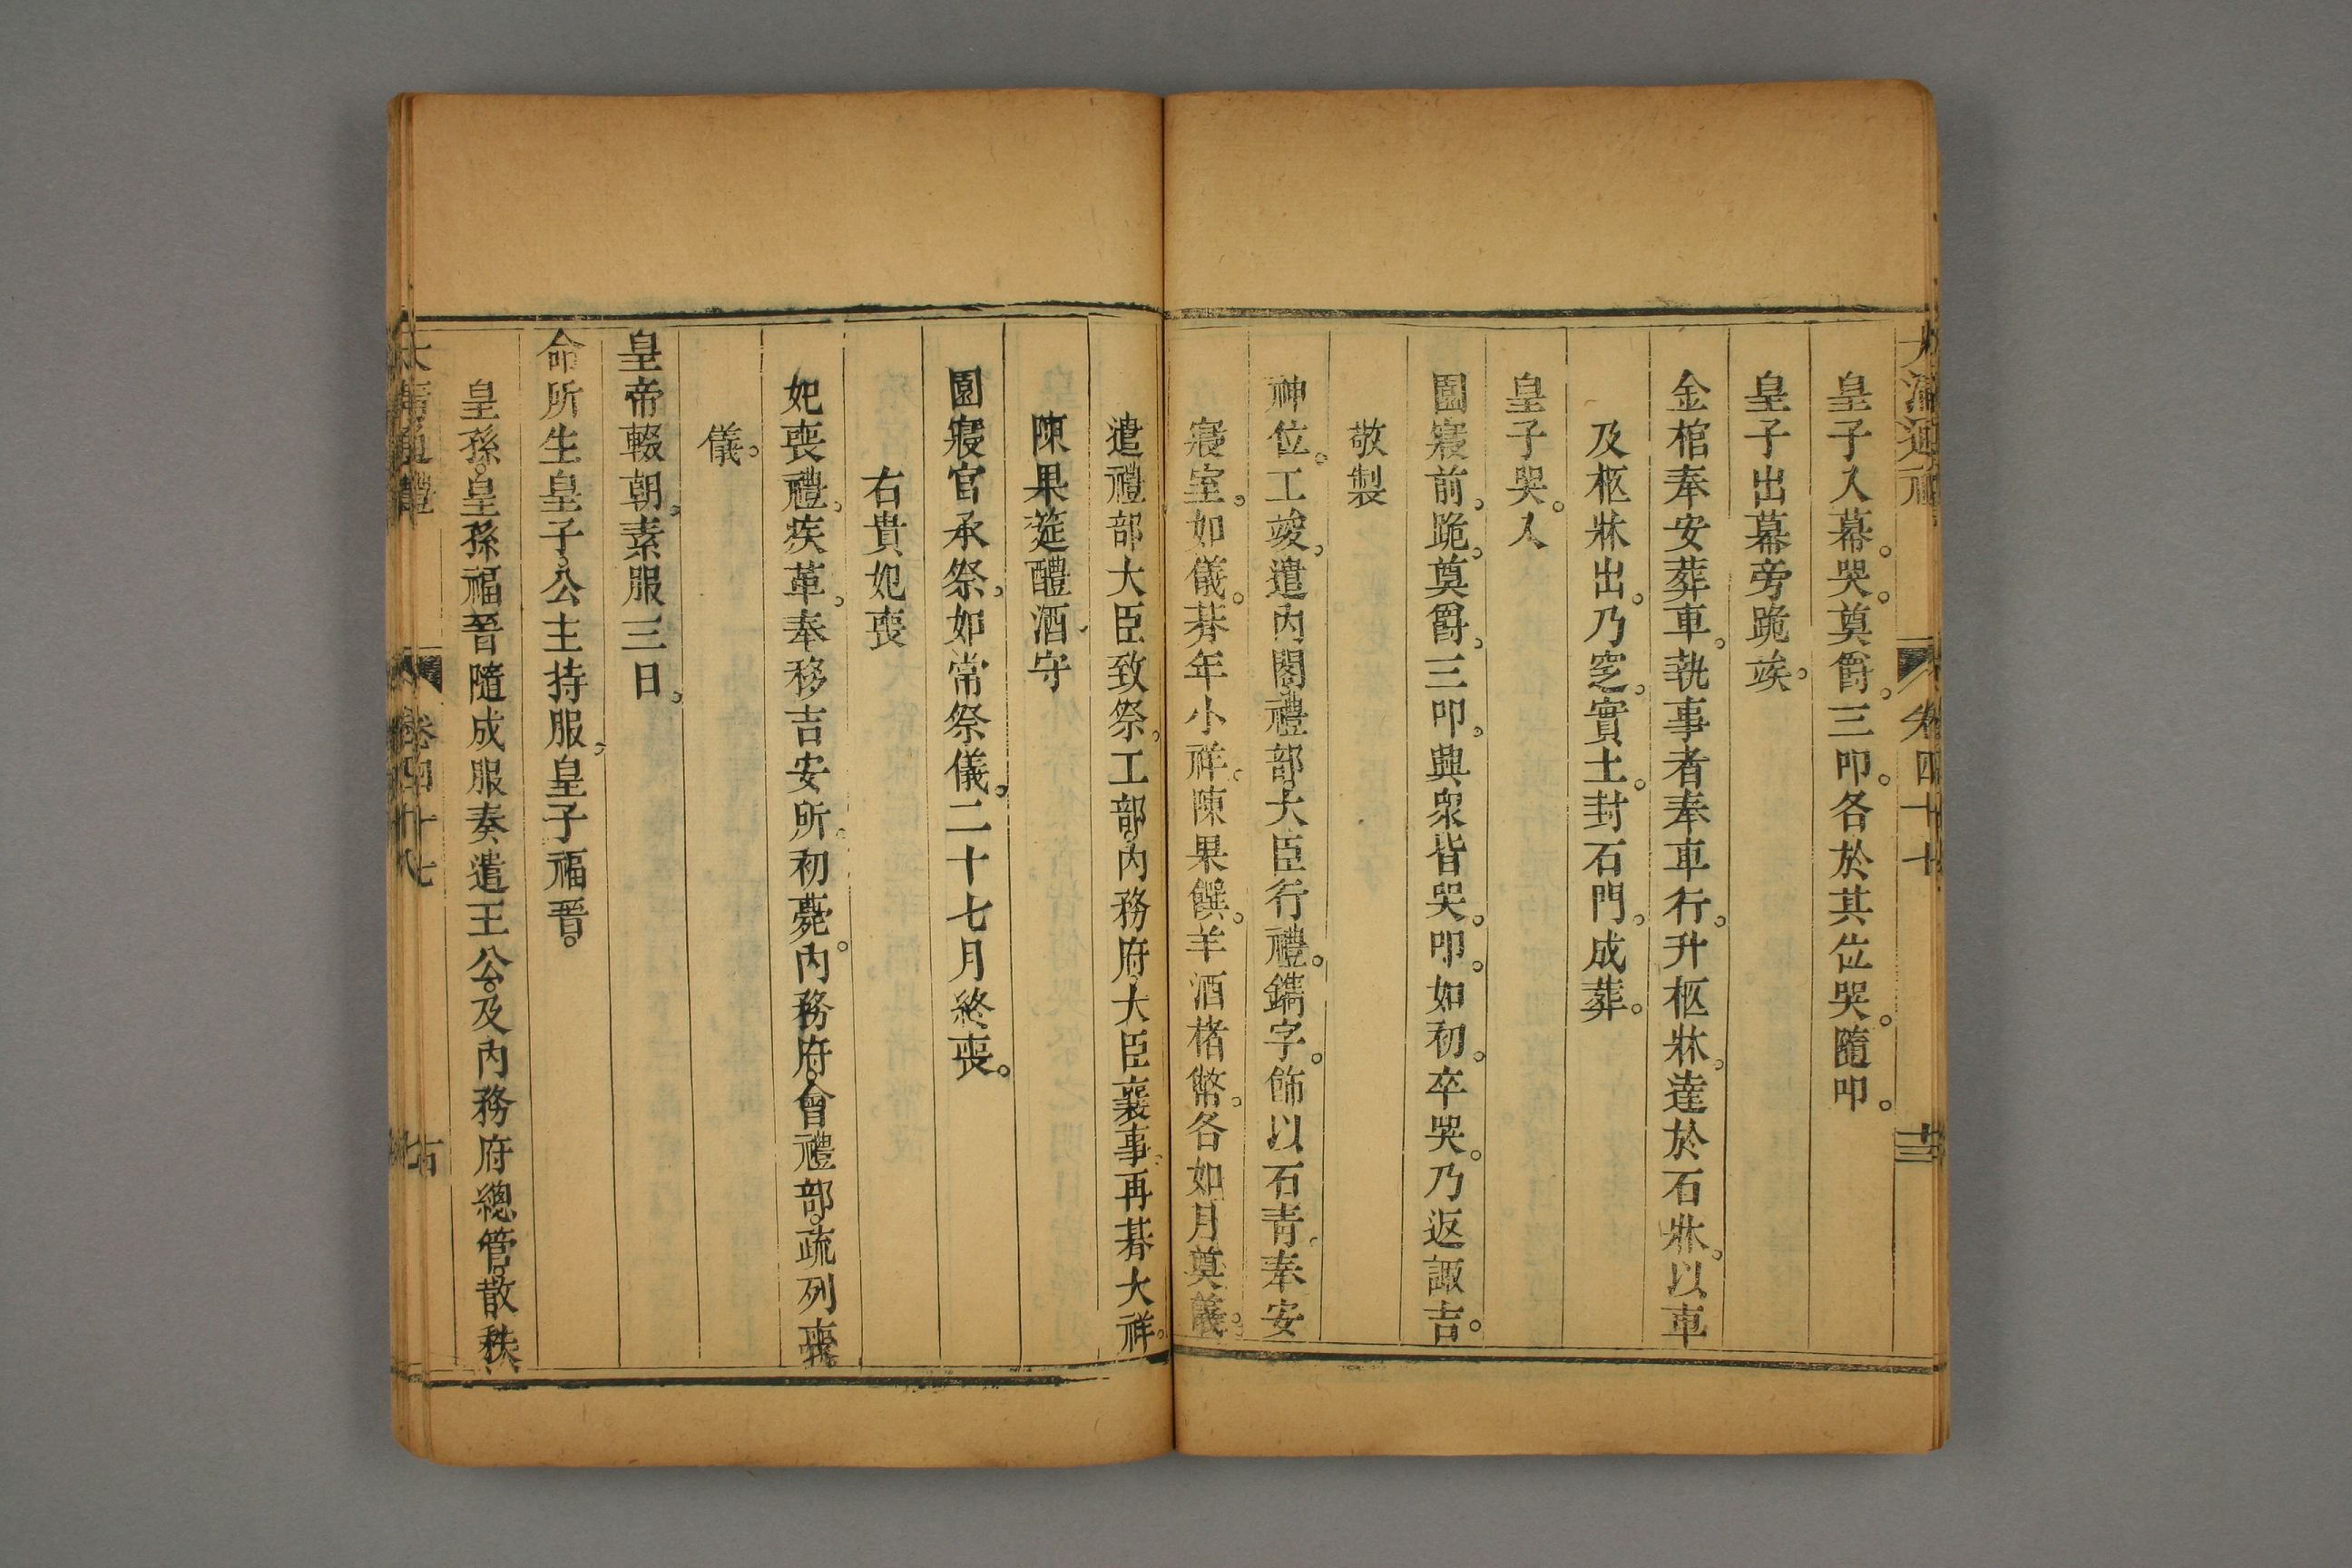 皇子入幕。哭。奠爵。三叩。各於其位哭。隨叩。
皇子出幕旁跪竢。
金棺奉安葬車。執事者奉車行。升柩牀。達於石牀。以車
及柩牀出。乃窆。實土。封石門。成葬。
皇子哭。入
園寢前。跪。奠爵。三叩。興。衆皆哭。叩如初。卒哭。乃返諏吉。
敬製
神位。工竣。遣內閣禮部大臣行禮。鐫字。飾以石青。奉安
寢室。如儀。朞年小祥。陳果饌。羊酒楮幣。各如月奠儀。
遣禮部大臣致祭。工部。內務府大臣襄事。再朞大祥。
陳果筵醴酒。守
園寢官承祭。如常祭儀。二十七月終喪。
右貴妃喪
妃喪禮。疾革。奉移吉安所。初薨。內務府。會禮部。疏列喪
儀。
皇帝輟朝。素服三日。
命所生皇子。公主持服。皇子福晉。
皇孫。皇孫福晉隨成服奏遣王公。及內務府總管。散秩
大清通禮
卷四十七